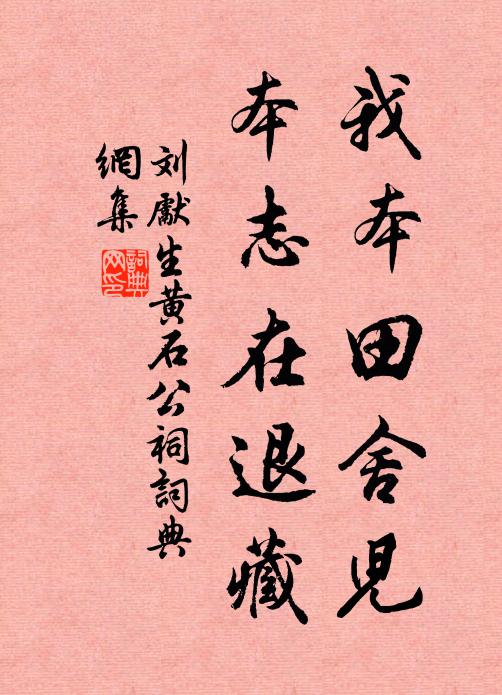 我本田舍児
本志在退藏
刘獻生黄石公祠詞典
網集
詞典
网印